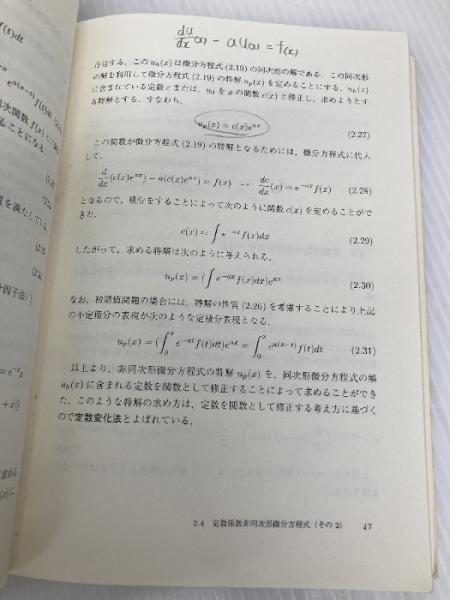 du/dx(x) - au(x) = f(x)
存在する．この u_h(x) は微分方程式 (2.19) の同次形の解である．この同次形
の解を利用して微分方程式 (2.19) の特解 u_p(x) を定めることにする．u_h(x)
に含まれている定数 c または, u_0 を x の関数 c(x) と修正し，求めようとす
る特解とする．すなわち，
u_p(x) = c(x)e^{ax} (2.27)
この関数が微分方程式 (2.19) の特解となるためには，微分方程式に代入
して，
d/dx (c(x)e^{ax}) - a(c(x)e^{ax}) = f(x) → dc/dx (x) = e^{-ax} f(x) (2.28)
となるので，積分をすることによって次のように関数 c(x) を定めることがで
きた．
c(x) = ∫ e^{-ax} f(x)dx (2.29)
したがって，求める特解は次のように与えられる．
u_p(x) = (∫ e^{-ax} f(x)dx)e^{ax} (2.30)
なお，初期値問題の場合には，特解の性質 (2.26) を考慮することにより上記
の不定積分の表現が次のような定積分表現となる．
u_p(x) = (∫_0^x e^{-at} f(t)dt)e^{ax} = ∫_0^x e^{a(x-t)} f(t)dt (2.31)
以上より，非同次形微分方程式の特解 u_p(x) を，同次形微分方程式の解
u_h(x) に含まれる定数を関数として修正することによって求めることができ
た．このような特解の求め方は，定数を関数として修正する考え方に基づく
ので定数変化法とよばれている．
2.4 定数係数非同次形微分方程式（その 2） 47